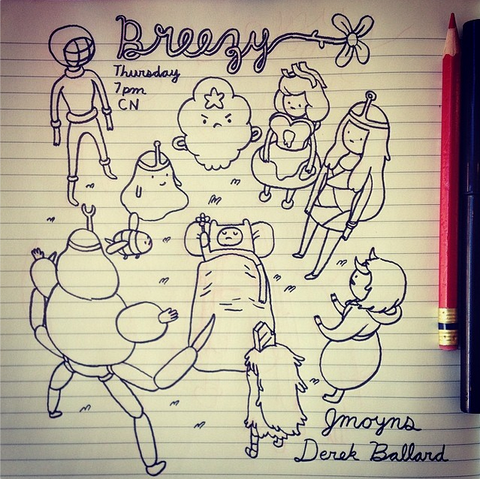 Breezy
Thursday
7pm
CN
Jmoyns
Derek Ballard